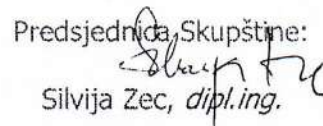 Predsjednica Skupštine:
Silvija Zec, dipl.ing.